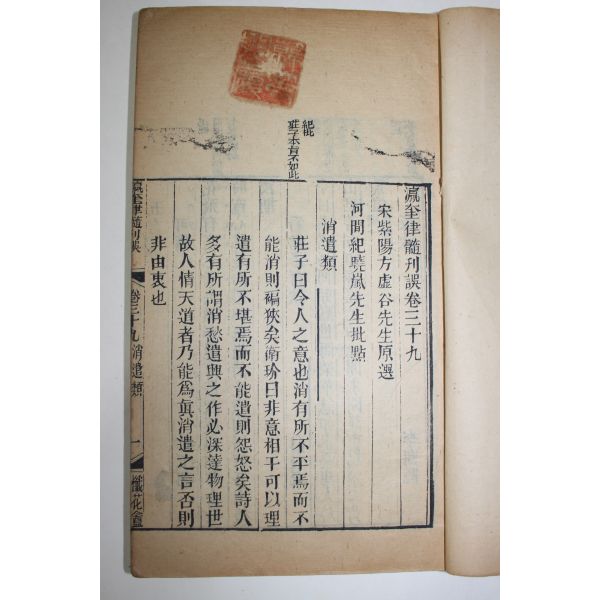 瀛奎律髓刊誤卷三十九
宋紫陽方虛谷先生原選
河間紀曉嵐先生批點
消遣類
莊子曰令人之意也消有所不平焉而不
能消則褊狹矣衛玠曰非意相干可以理
遣有所不堪焉而不能遣則怨怒矣詩人
多有所謂消愁遣興之作必深達物理世
故人情天道者乃能爲眞消遣之言否則
非由衷也
紀批
莊子本旨不如此
瀛奎律髓刊誤
卷三十九 消遣類
一
懺花盦